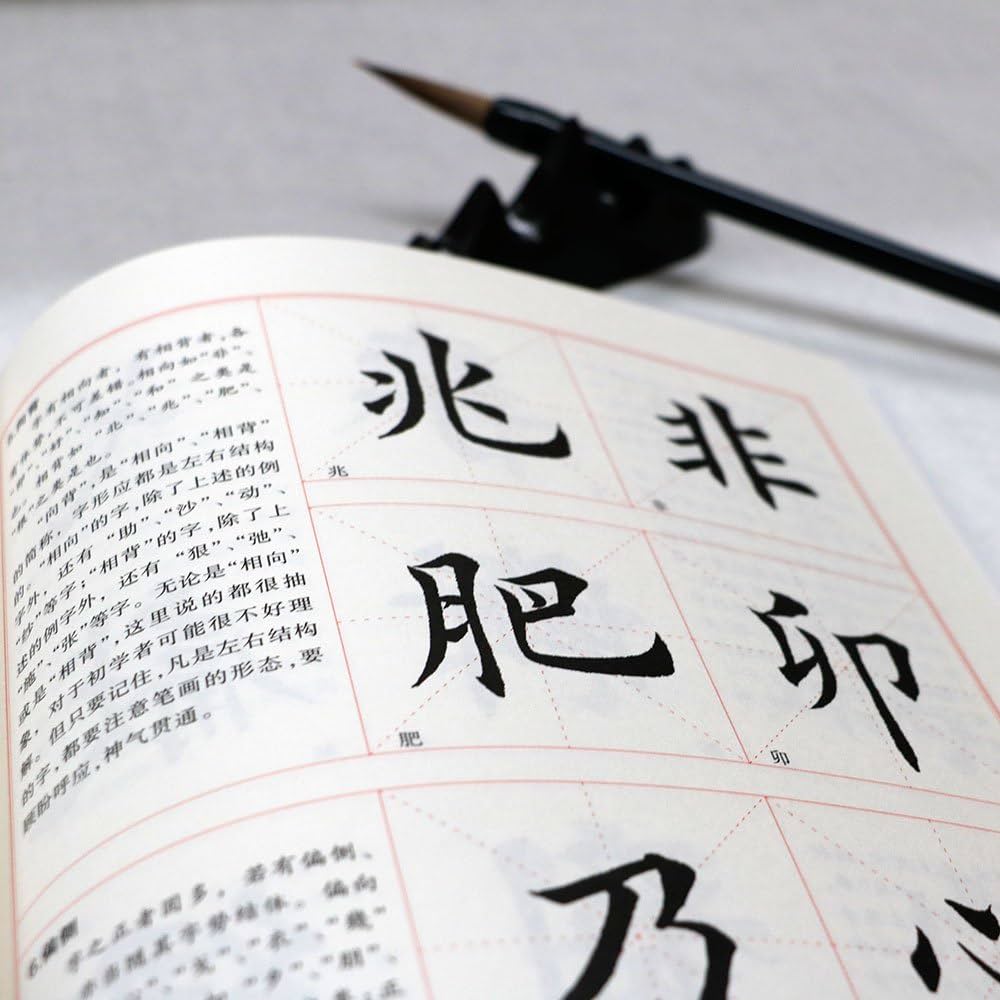 5.向背
字有相向者，有相背者，各
有体势，不可差错。相向如“非”、
“卯”、“好”、“知”、“和” 之类是
也。相背如 “北”、“兆”、“肥”、
“根”之类是也。
“向背”，是“相向”、“相背”
的简称，字形应都是左右结构
的。“相向”的字，除了上述的例
字外，还有 “助”、“沙”、“动”、
“妙”等字；“相背”的字，除了上
述的例字外，还有 “狠”、“弛”、
“施”、“张”等字。无论是“相向”
或是“相背”，这里说的都很抽
象，对于初学者可能很不好理
解。但只要记住，凡是左右结构
的字，都要注意笔画的形态，要
顾盼呼应，神气贯通。
兆
非
兆
肥
卯
肥
卯
6.偏侧
字之正者固多，若有偏侧、
亦当随其字势结体。偏向
“戈”、“衣”、“幾”
“少”、“朋”、
乃
心